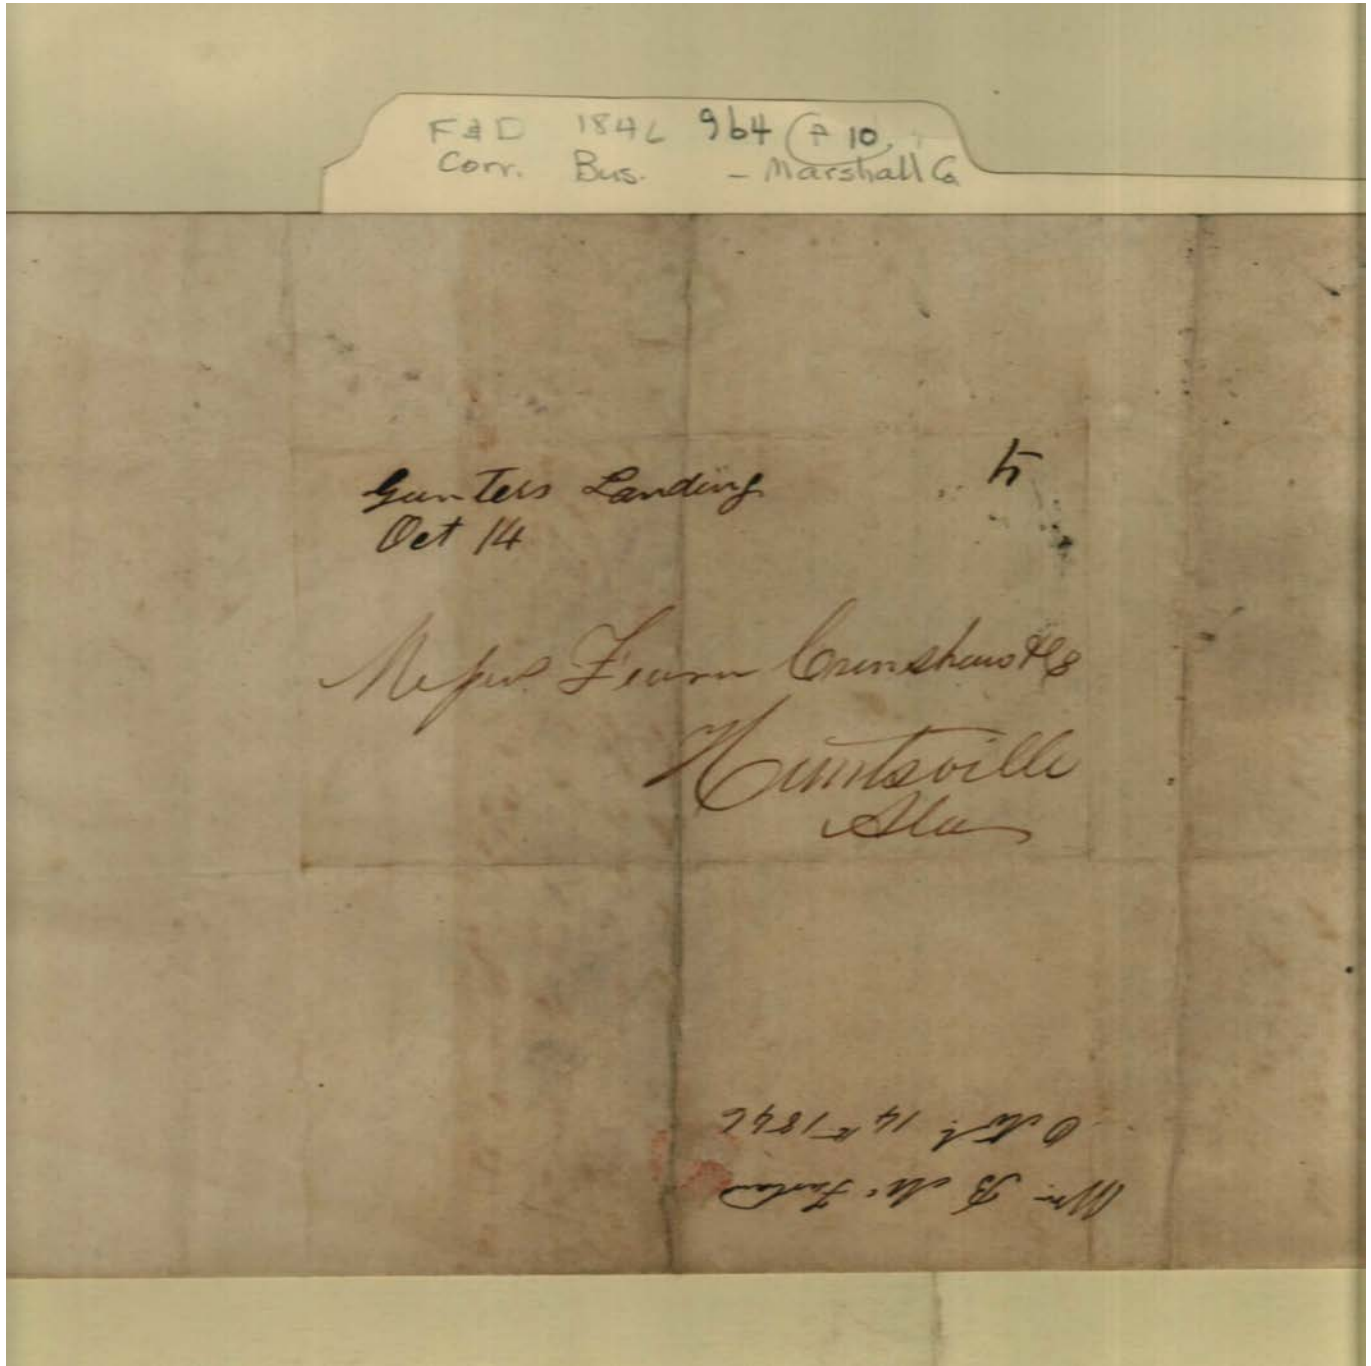 F&D 1846 964 (P 10)
Corr. Bus. - Marshall Co
Gunters Landing
Oct 14
5
Messrs Fearn Crenshaw & Co
Huntsville
Ala
Wm B McFarland
Octob. 14th 1846